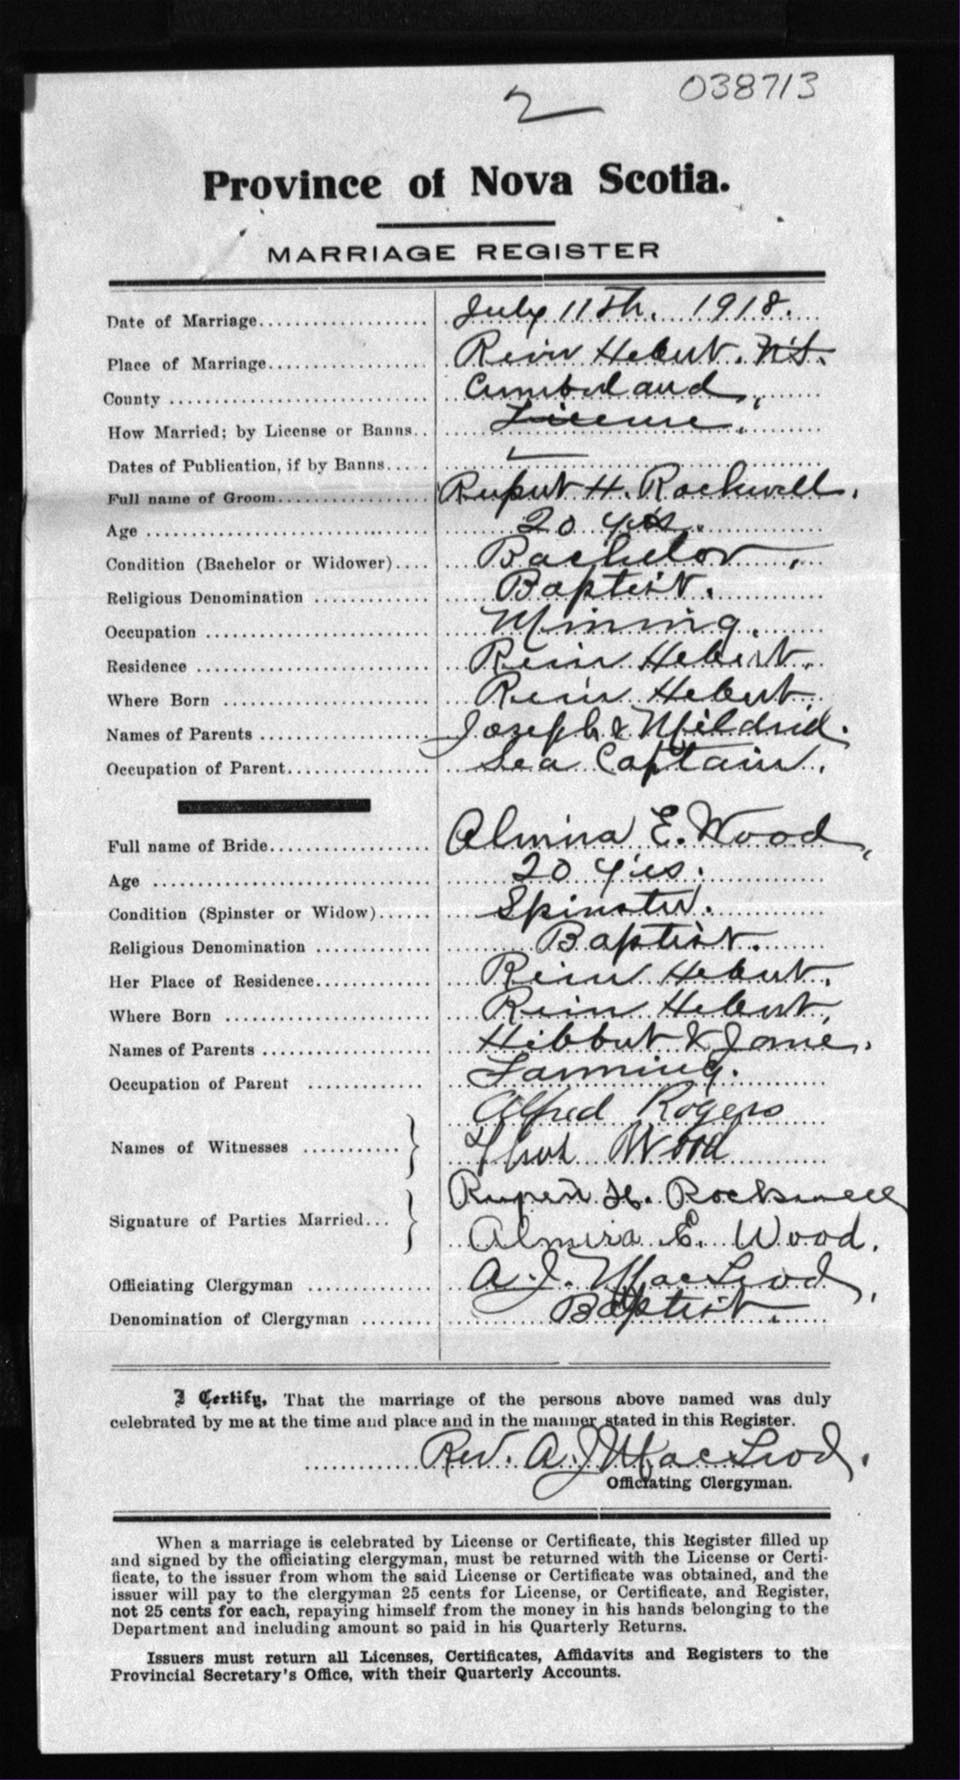 038713
2
Province of Nova Scotia.
MARRIAGE REGISTER
Date of Marriage.................. July 11th. 1918.
Place of Marriage.................. River Hebert. N.S.
County .................. Cumberland.
How Married; by License or Banns.. License.
Dates of Publication, if by Banns.....
Full name of Groom.................. Rupert H. Rockwell.
Age .................. 20 yrs.
Condition (Bachelor or Widower).... Bachelor.
Religious Denomination ............ Baptist.
Occupation .................. Mining.
Residence .................. River Hebert.
Where Born .................. River Hebert.
Names of Parents .................. Joseph & Mildred.
Occupation of Parent.................. Sea Captain.
Full name of Bride.................. Almira E. Wood,
Age .................. 20 yrs.
Condition (Spinster or Widow)...... Spinster.
Religious Denomination ............ Baptist.
Her Place of Residence............. River Hebert.
Where Born .................. River Hebert,
Names of Parents .................. Hibbert & Jane.
Occupation of Parent ............ Farming.
Alfred Rogers
Names of Witnesses ............ } Wood
Rupert H. Rockwell
Signature of Parties Married... }
Almira E. Wood.
Officiating Clergyman ............ A. J. MacLeod,
Denomination of Clergyman ........ Baptist.
I Certify, That the marriage of the persons above named was duly
celebrated by me at the time and place and in the manner stated in this Register.
Rev. A. J. MacLeod.
Officiating Clergyman.
When a marriage is celebrated by License or Certificate, this Register filled up
and signed by the officiating clergyman, must be returned with the License or Certi-
ficate, to the issuer from whom the said License or Certificate was obtained, and the
issuer will pay to the clergyman 25 cents for License, or Certificate, and Register,
not 25 cents for each, repaying himself from the money in his hands belonging to the
Department and including amount so paid in his Quarterly Returns.
Issuers must return all Licenses, Certificates, Affidavits and Registers to the
Provincial Secretary's Office, with their Quarterly Accounts.